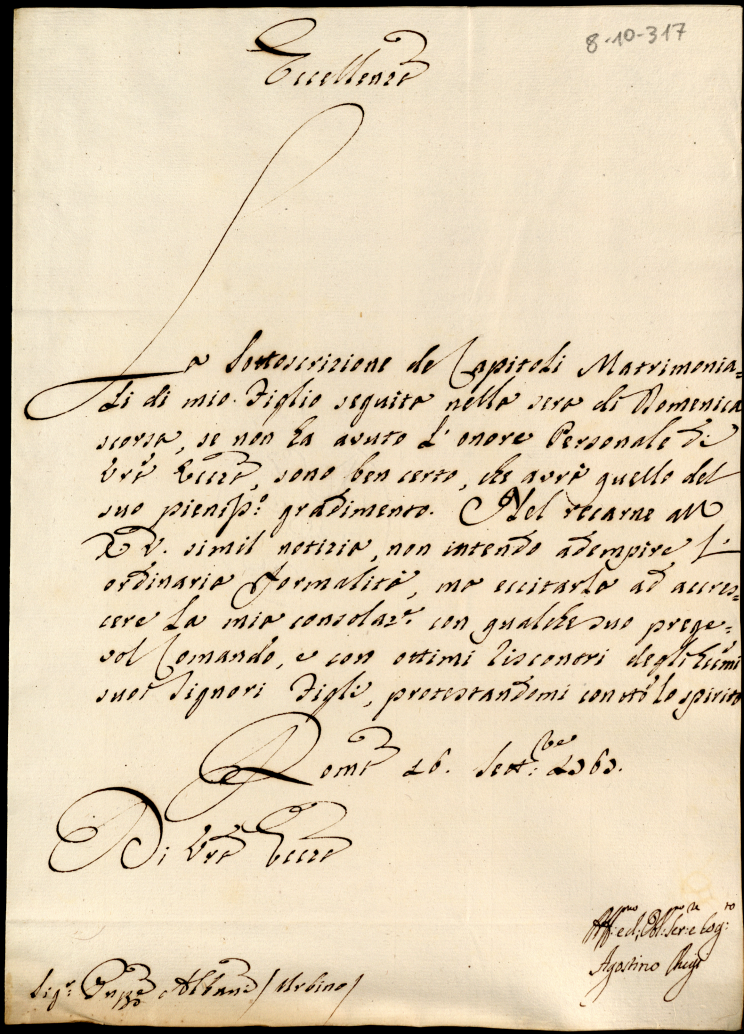 8-10-317
Eccellenza
La Sottoscrizione de Capitoli Matrimonia=
li di mio Figlio seguita nella sera di Domenica
scorsa, se non ha avuto l'onore Personale di
Vrã Eccza, sono ben certo, che avrà quello del
suo pieniss.º gradimento. Nel recarne all'
E. V. simil notizia, non intendo adempire l'
ordinaria formalità, ma eccitarla ad accres=
cere la mia consolaz.e con qualche suo prege=
vol Comando, e con ottimi riscontri degli Eccmi
suoi Signori Figli, protestandomi con tto lo spirito
Roma 26. Sett.bre 1763.
Di Vrã Eccza
Aff.mo ed Obl.mo Ser.re e Cog.to
Agostino Chigi
Sig.r Pnpe Albani / Urbino /